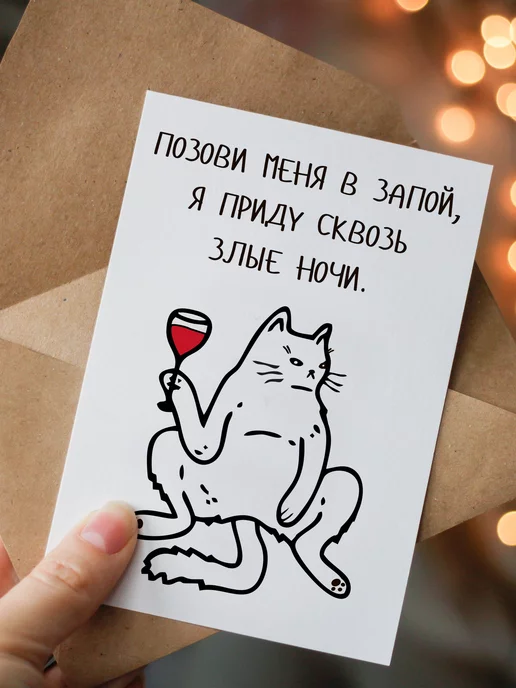 ПОЗОВИ МЕНЯ В ЗАПОЙ,
Я ПРИДУ СКВОЗЬ
ЗЛЫЕ НОЧИ.